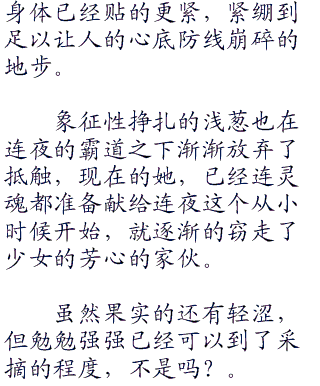 身体已经贴的更紧，紧绷到
足以让人的心底防线崩碎的
地步。
象征性挣扎的浅葱也在
连夜的霸道之下渐渐放弃了
抵触，现在的她，已经连灵
魂都准备献给连夜这个从小
时候开始，就逐渐的窃走了
少女的芳心的家伙。
虽然果实的还有轻涩，
但勉勉强强已经可以到了采
摘的程度，不是吗？。